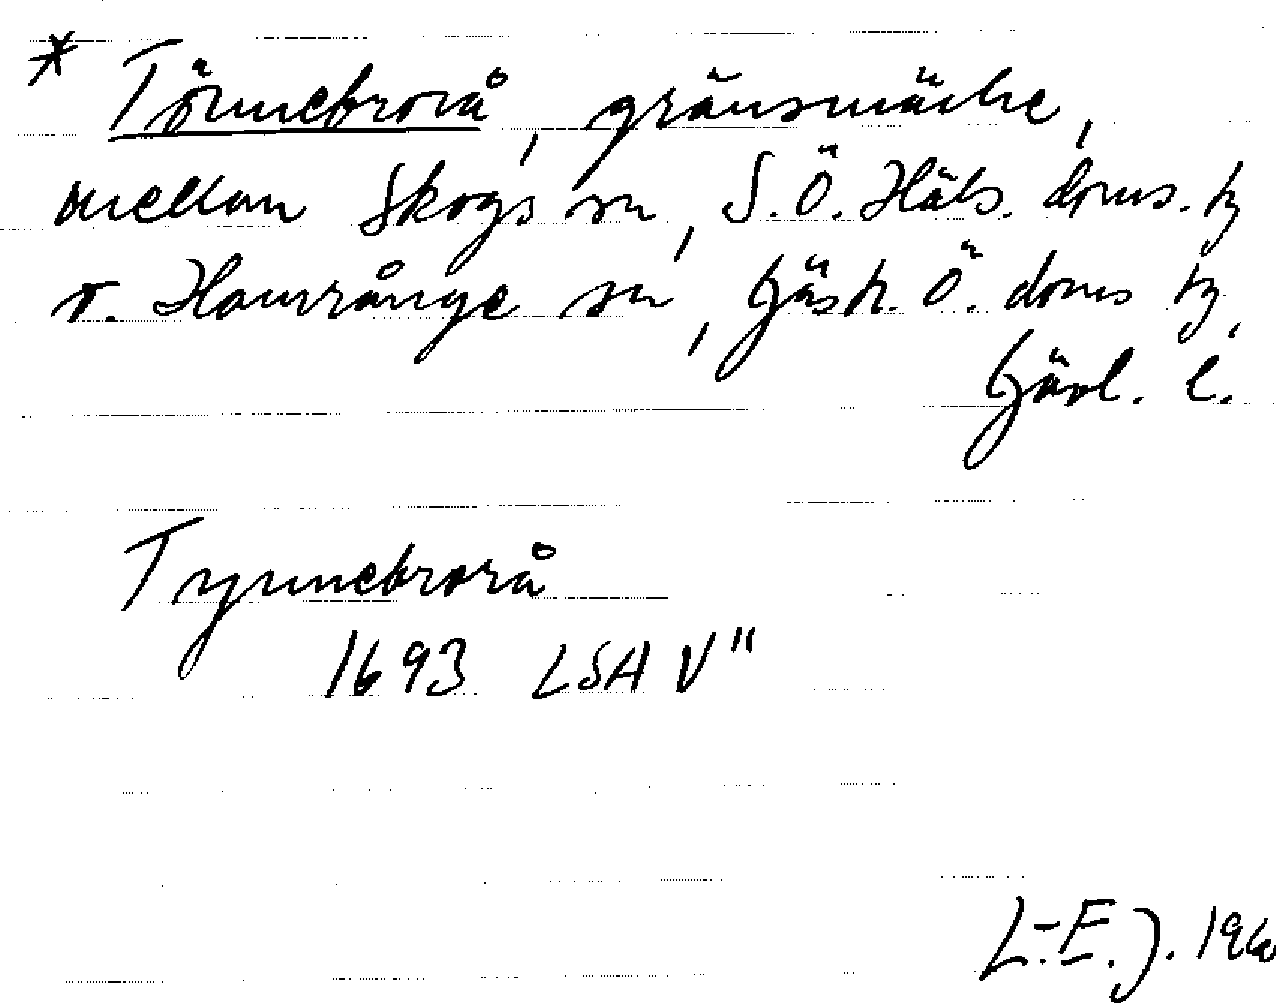 * Tönnebrorå, gränsmärke,
mellan Skogs sn, S.Ö. Häls. doms. tg
o. Hamrånge sn, Gästr. Ö. doms tg,
Gävl. l.
Tynnebrorå
1693 LSA V"
L-E.J.